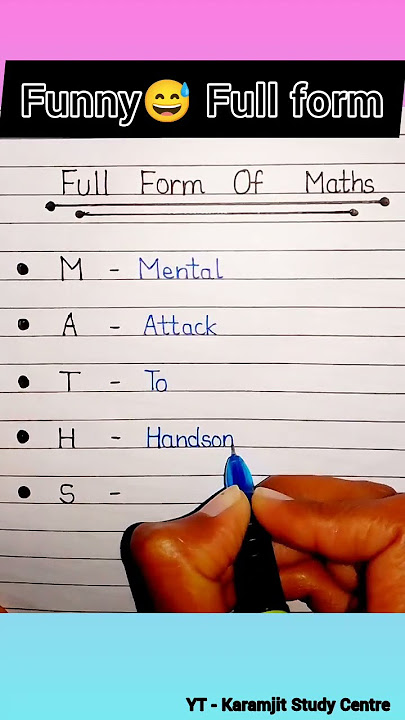 Funny😅 Full form
Full Form Of Maths
M - Mental
A - Attack
T - To
H - Handson
S -
YT - Karamjit Study Centre